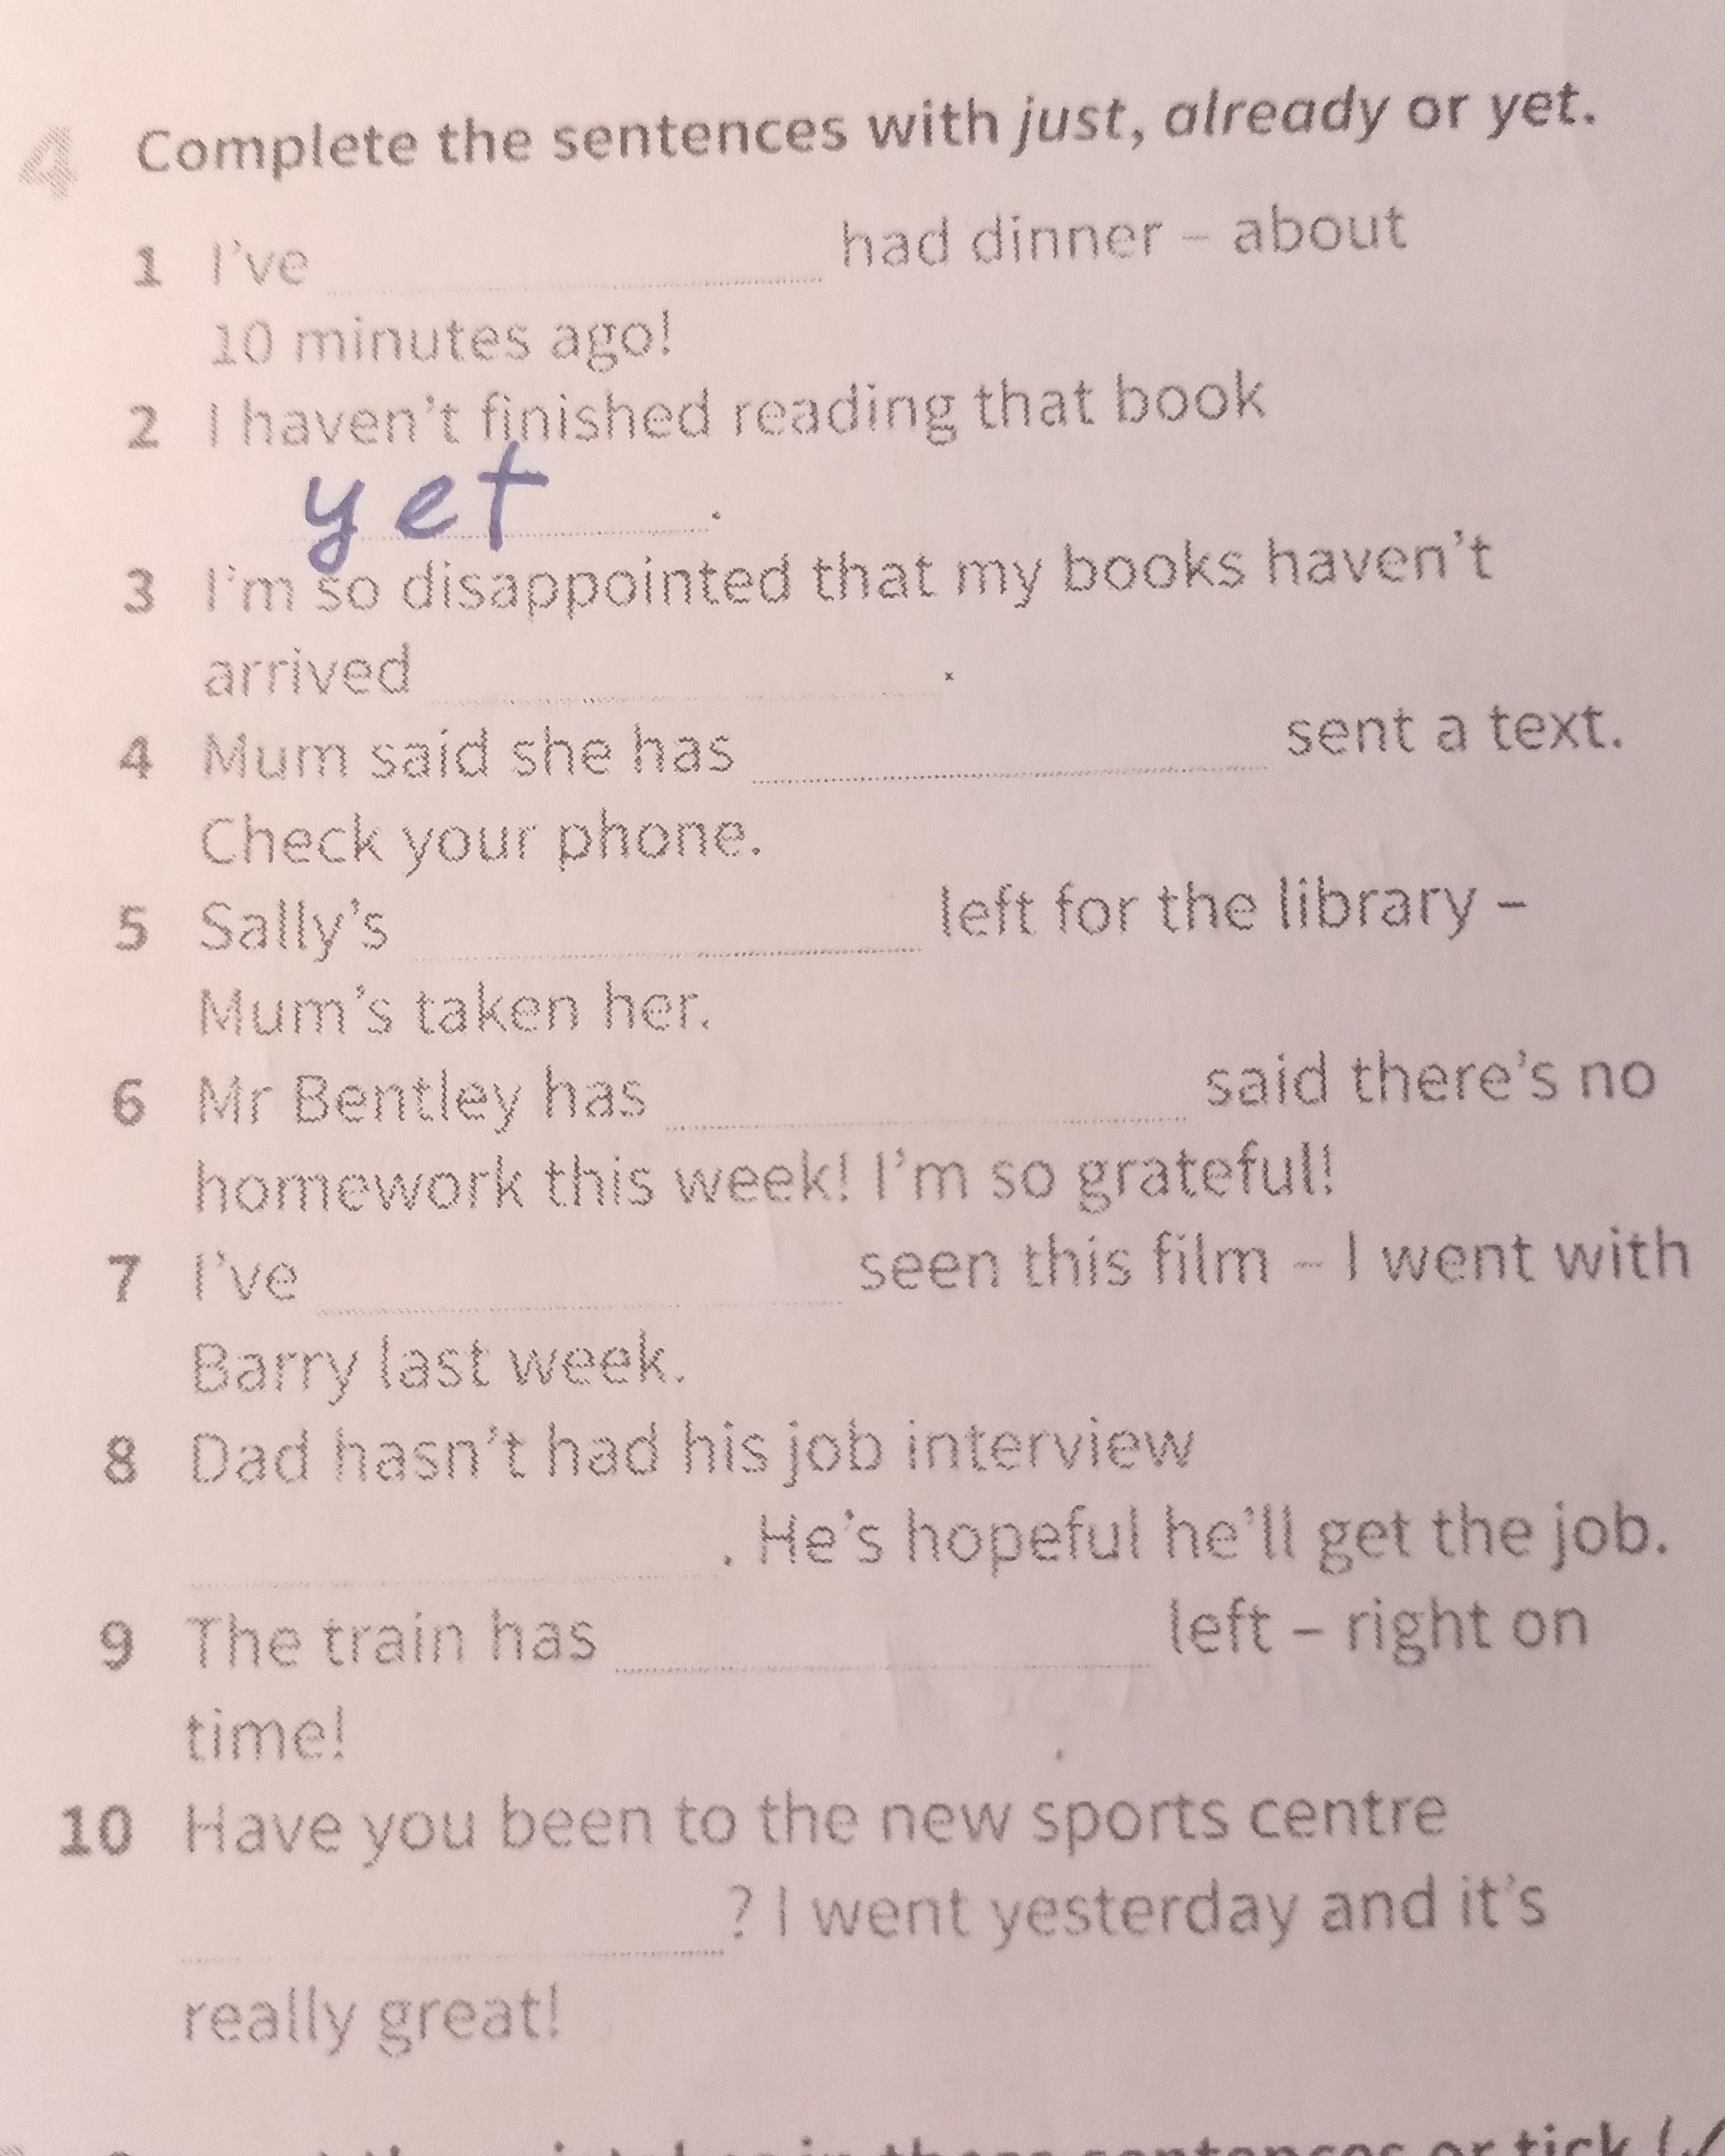 4 Complete the sentences with just, already or yet.
1 I've ____ had dinner – about
10 minutes ago!
2 I haven't finished reading that book
yet.
3 I'm so disappointed that my books haven't
arrived ____.
4 Mum said she has ____ sent a text.
Check your phone.
5 Sally's ____ left for the library –
Mum's taken her.
6 Mr Bentley has ____ said there's no
homework this week! I'm so grateful!
7 I've ____ seen this film – I went with
Barry last week.
8 Dad hasn't had his job interview
____. He's hopeful he'll get the job.
9 The train has ____ left – right on
time!
10 Have you been to the new sports centre
____? I went yesterday and it's
really great!
in these sentences or tick